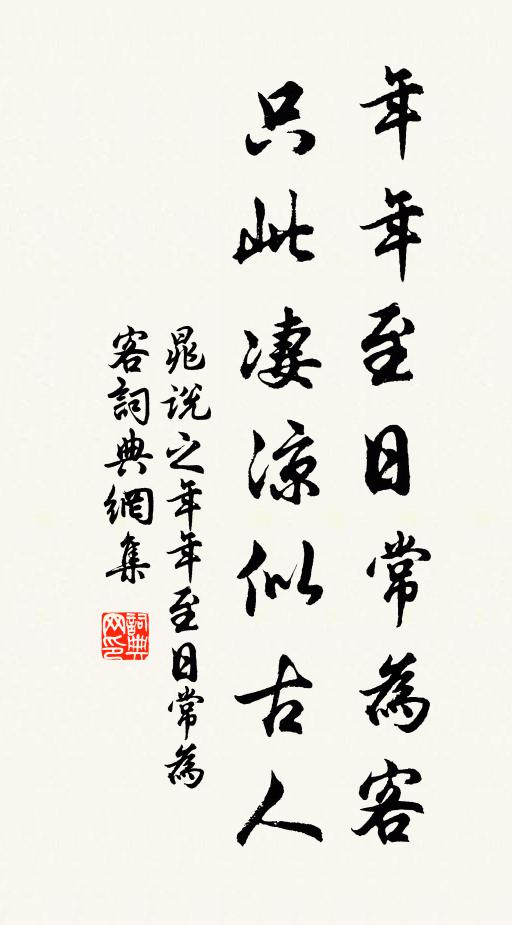 年年至日常為客
只此凄凉似古人
晁說之年年至日常為
客詞典網集
詞典
网印